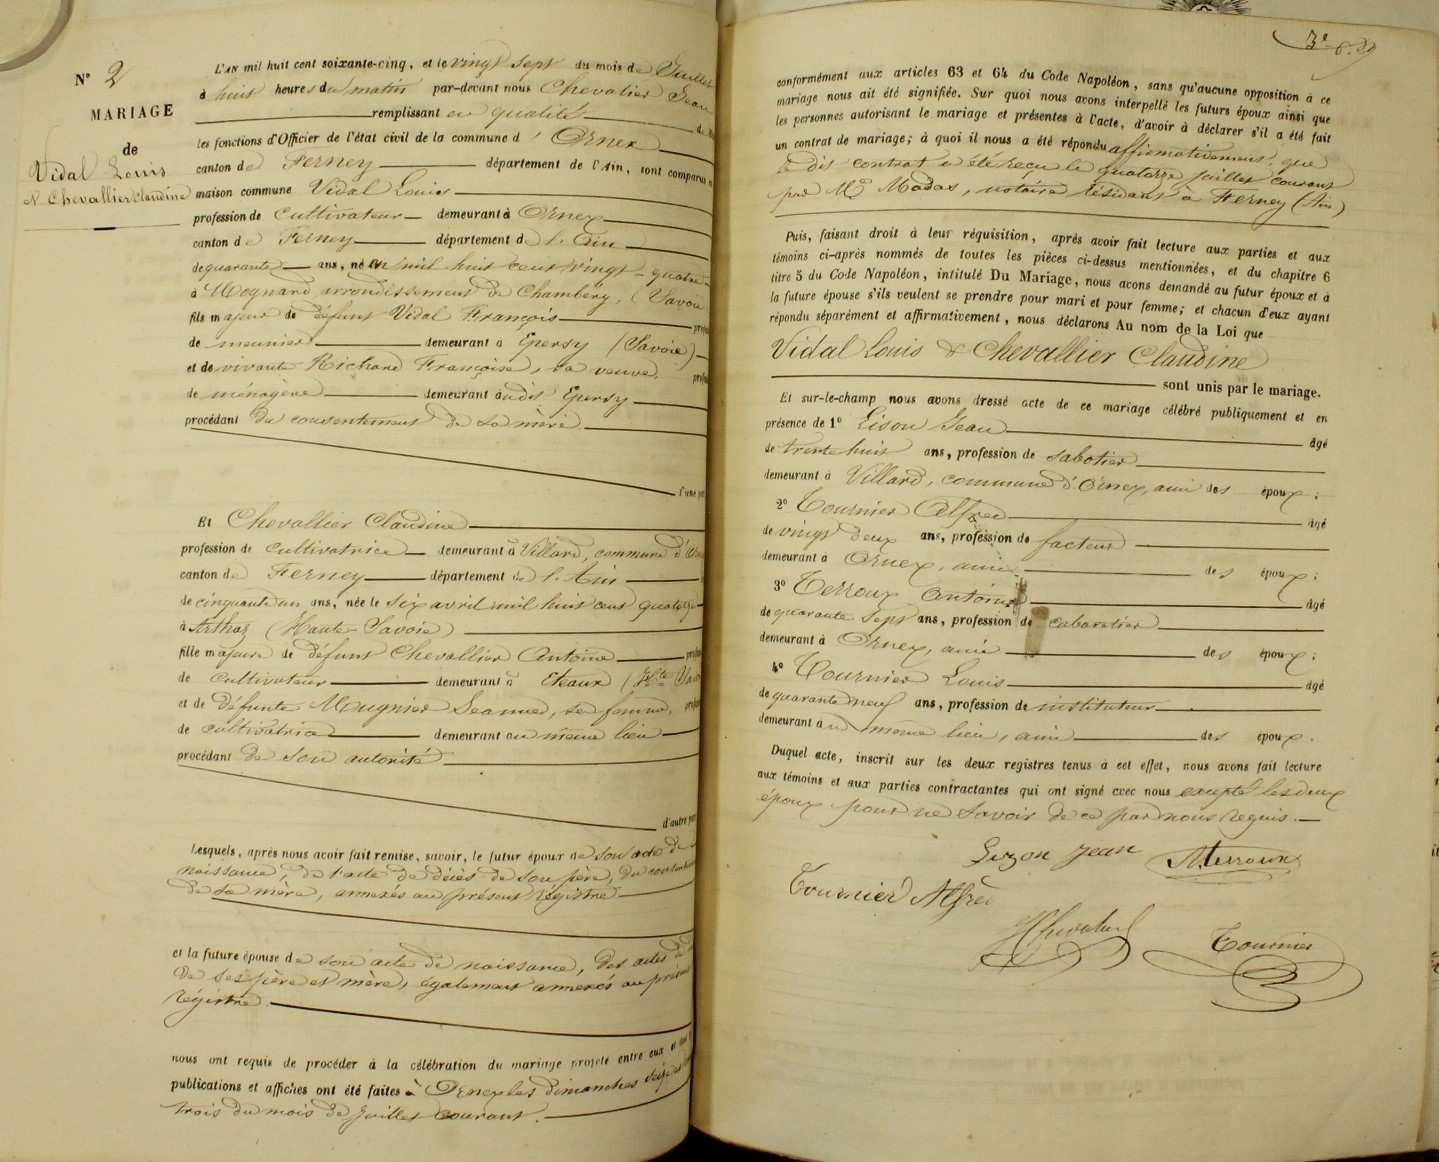 N° 2
MARIAGE
de
Vidal Louis
& Chevallier Claudine
L'AN mil huit cent soixante-cinq, et le vingt sept du mois de Juillet
à huit heures du matin par-devant nous Chevalier Jean
remplissant en qualité de
les fonctions d'Officier de l'état civil de la commune d'Ornex
canton de Ferney département de l'Ain, sont comparus en
maison commune Vidal Louis
profession de Cultivateur demeurant à Ornex
canton de Ferney département de l'Ain
de quarante ans, né en mil huit cent vingt-quatre
à Mognard arrondissement de Chambéry, (Savoie
fils majeur de défunt Vidal François
de meunier demeurant à Epersy (Savoie)
et de vivante Richard Françoise, sa veuve,
de ménagère demeurant audit Epersy
procédant du consentement de sa mère
d'une part
Et Chevallier Claudine
profession de cultivatrice demeurant à Villard, commune d'Ornex
canton de Ferney département de l'Ain
de cinquante un ans, née le six avril mil huit cent quatorze
à Arthaz (Haute-Savoie)
fille majeure de défunt Chevallier Antoine
de Cultivateur demeurant à Eteaux (Hte Savoie
et de défunte Mugnier Jeanne, sa femme,
de cultivatrice demeurant au même lieu
procédant de son autorité
d'autre part
Lesquels, après nous avoir fait remise, savoir, le futur époux de son acte de
naissance, de l'acte de décès de son père, du consentement
de sa mère, annexés au présent registre
et la future épouse de son acte de naissance, des actes de
de ses père et mère, également annexés au présent
régistre
nous ont requis de procéder à la célébration du mariage projeté entre eux et dont les
publications et affiches ont été faites à Ornex les dimanches seize et
trois du mois de Juillet courant.
conformément aux articles 63 et 64 du Code Napoléon, sans qu'aucune opposition à ce
mariage nous ait été signifiée. Sur quoi nous avons interpellé les futurs époux ainsi que
les personnes autorisant le mariage et présentes à l'acte, d'avoir à déclarer s'il a été fait
un contrat de mariage; à quoi il nous a été répondu affirmativement, que
le dit contrat a été reçu le quatorze juillet courant
par Me Modas, notaire résidant à Ferney (Ain)
Puis, faisant droit à leur réquisition, après avoir fait lecture aux parties et aux
témoins ci-après nommés de toutes les pièces ci-dessus mentionnées, et du chapitre 6
titre 5 du Code Napoléon, intitulé Du Mariage, nous avons demandé au futur époux et à
la future épouse s'ils veulent se prendre pour mari et pour femme; et chacun d'eux ayant
répondu séparément et affirmativement, nous déclarons Au nom de la Loi que
Vidal Louis & Chevallier Claudine
sont unis par le mariage.
Et sur-le-champ nous avons dressé acte de ce mariage célébré publiquement et en
présence de 1° Lison Jean âgé
de trente huit ans, profession de sabotier
demeurant à Villard, commune d'Ornex, ami des époux;
2° Tournier Alfred âgé
de vingt deux ans, profession de facteur
demeurant à Ornex, ami des époux;
3° Terroux Antoine âgé
de quarante sept ans, profession de cabaretier
demeurant à Ornex, ami des époux;
4° Tournier Louis âgé
de quarante neuf ans, profession de instituteur
demeurant au même lieu, ami des époux.
Duquel acte, inscrit sur les deux registres tenus à cet effet, nous avons fait lecture
aux témoins et aux parties contractantes qui ont signé avec nous excepté les deux
époux pour ne savoir de ce par nous requis.
Lizon Jean
A Terroux
Tournier Alfred
Tournier